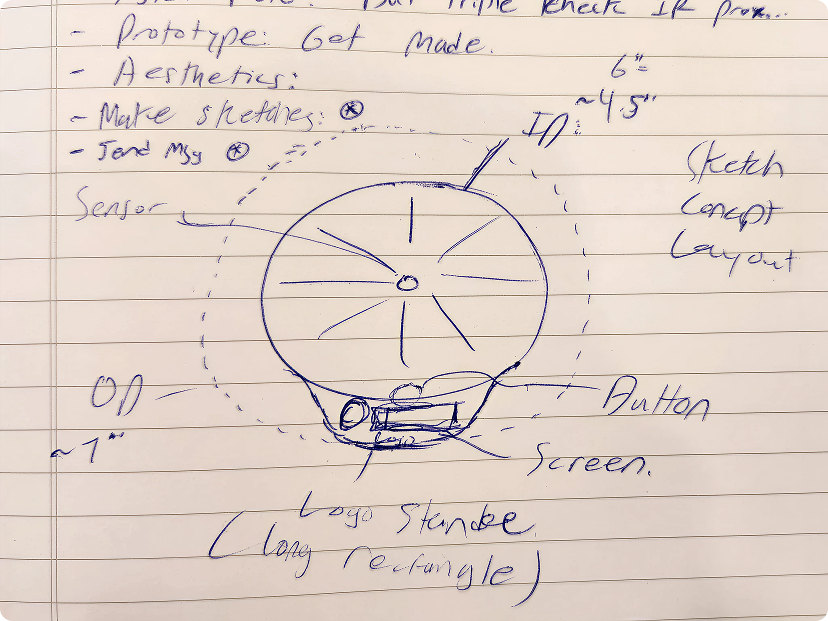 But triple check IR prox...
- Prototype: Get Made.
- Aesthetics:
- Make sketches:
- Send Msg
6"
~4.5"
ID:
Sketch
Concept
Layout
Sensor
OD
~7"
Button
Screen.
Logo
Logo
(long rectangle)